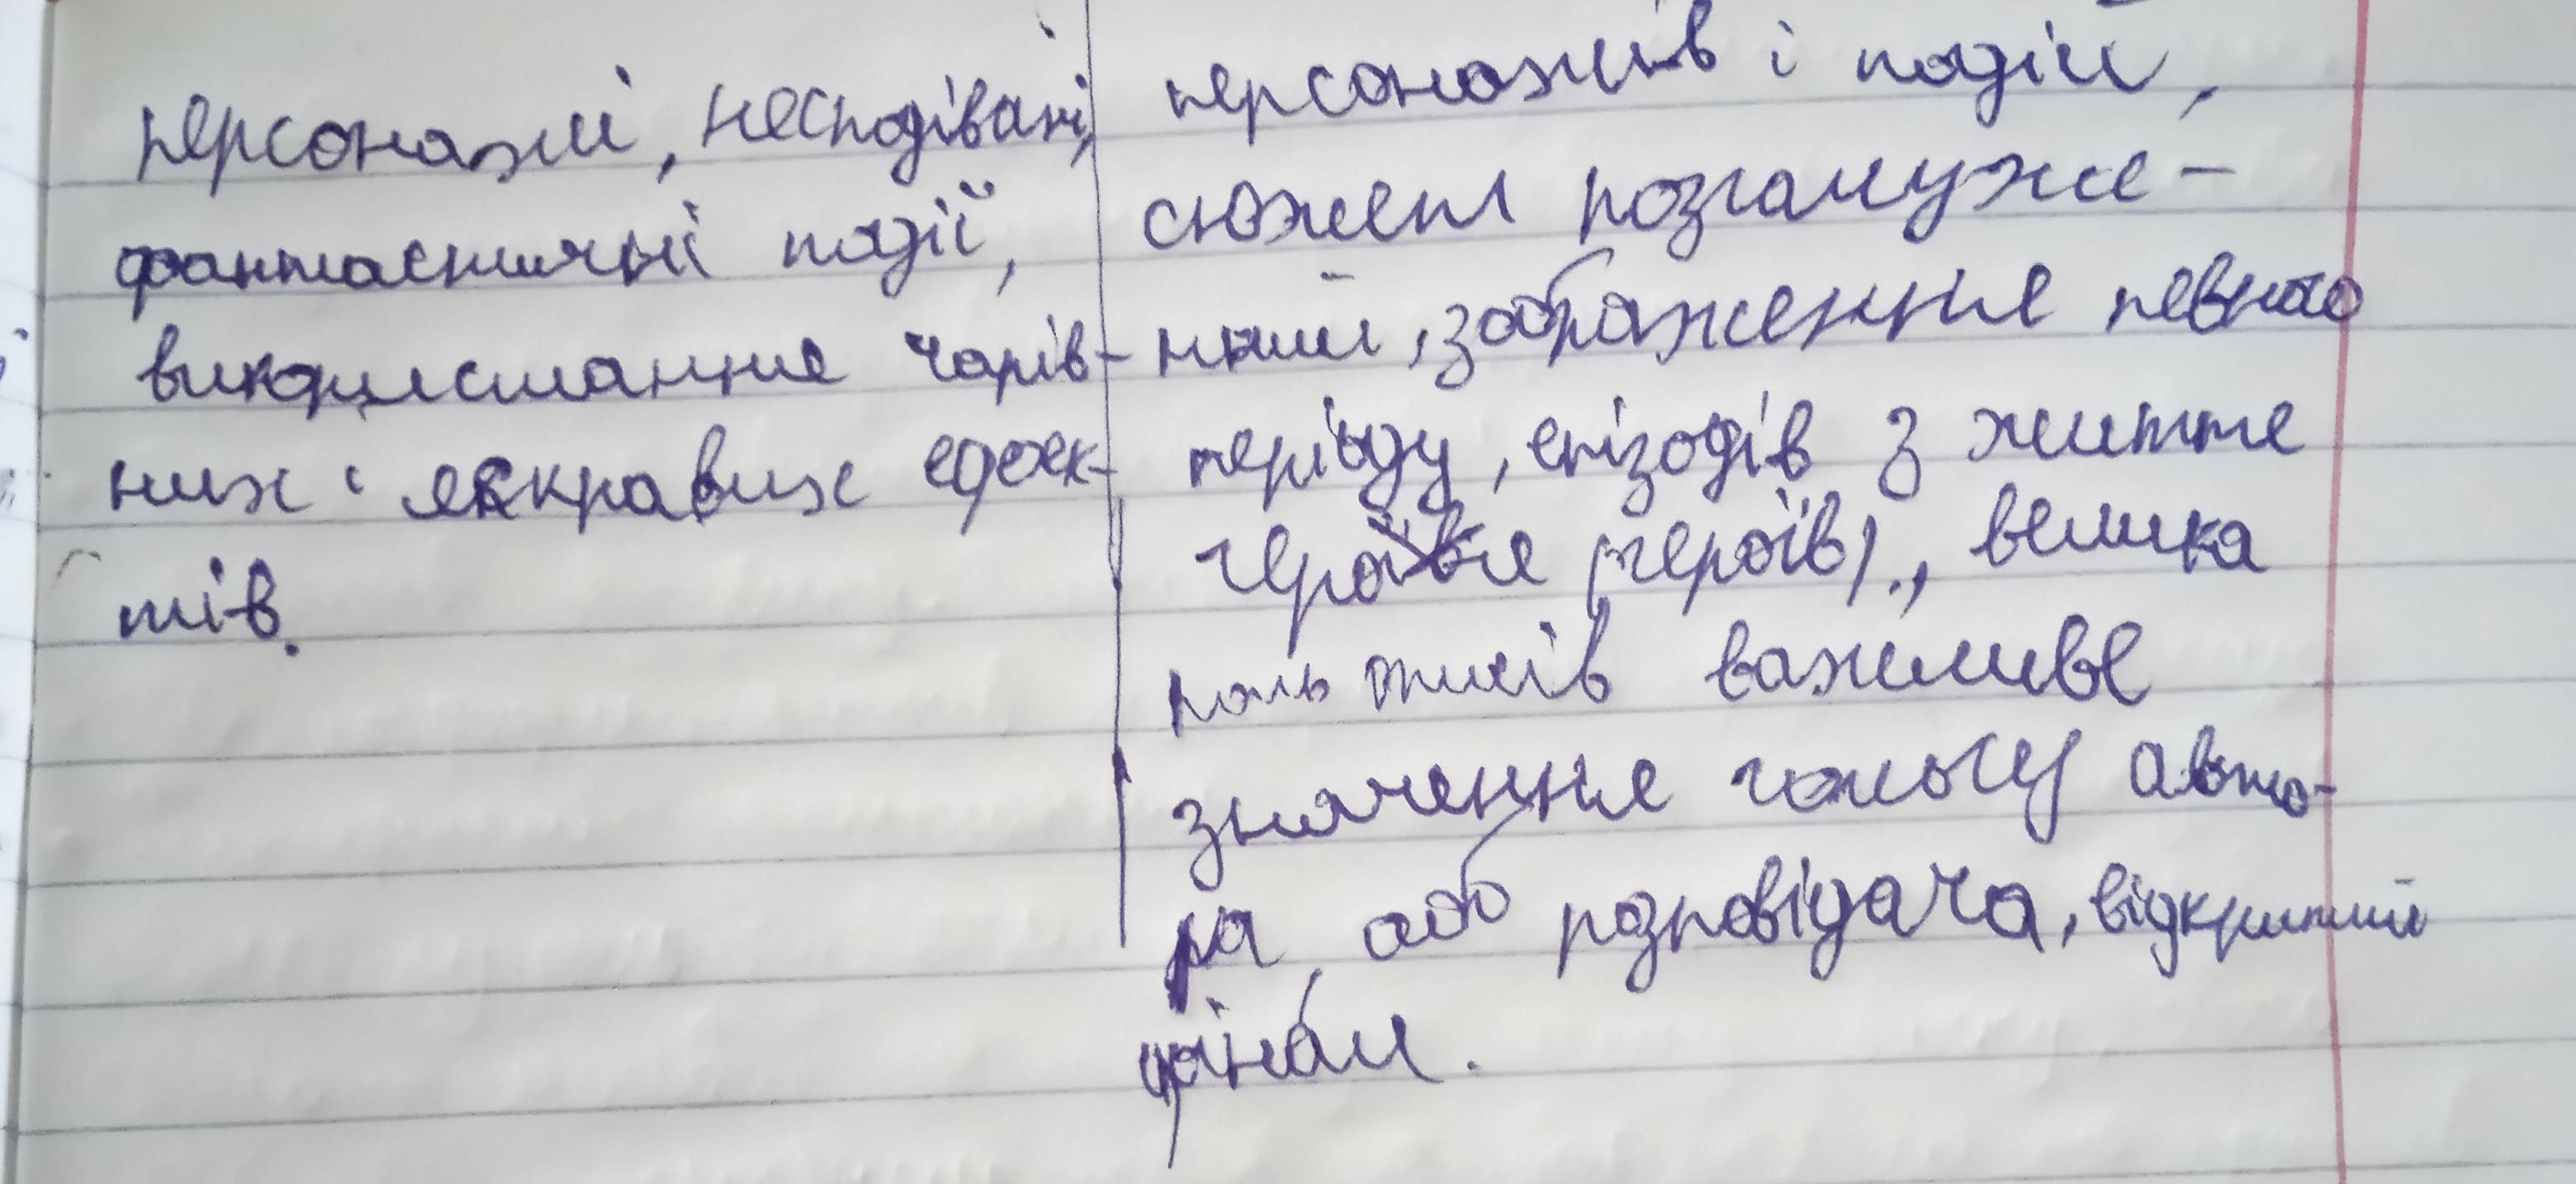 персонажі, несподівані,
фантастичні події,
використання чарів-
них і яскравих ефек-
тів.
персонажів і подій,
сюжет розгалуже-
ний, зображення певного
періоду, епізодів з життя
героя (героїв)., велика
роль описів важливе
значення голосу авто-
ра, або розповідача, відкритий
фінал.